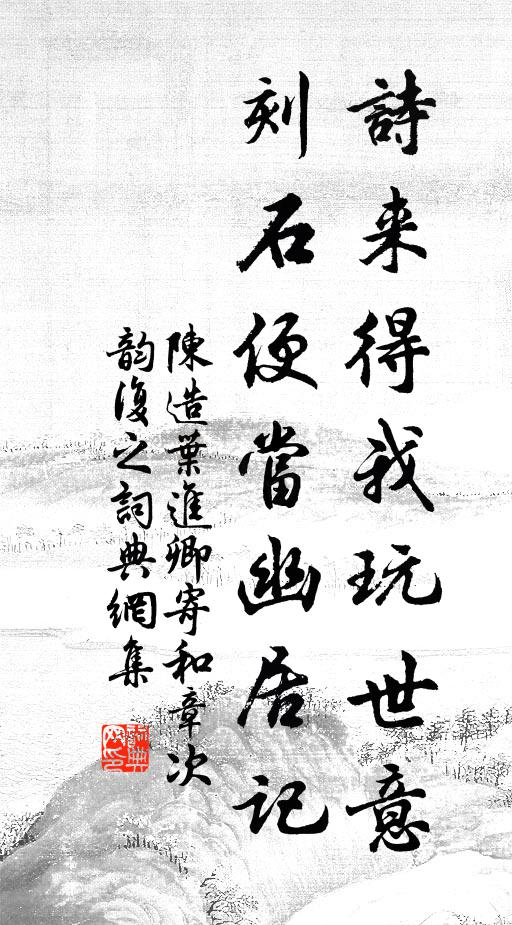 詩来得我玩世意
刻石便當幽居記
陳造葉進卿寄和章次
韵復之詞典網集